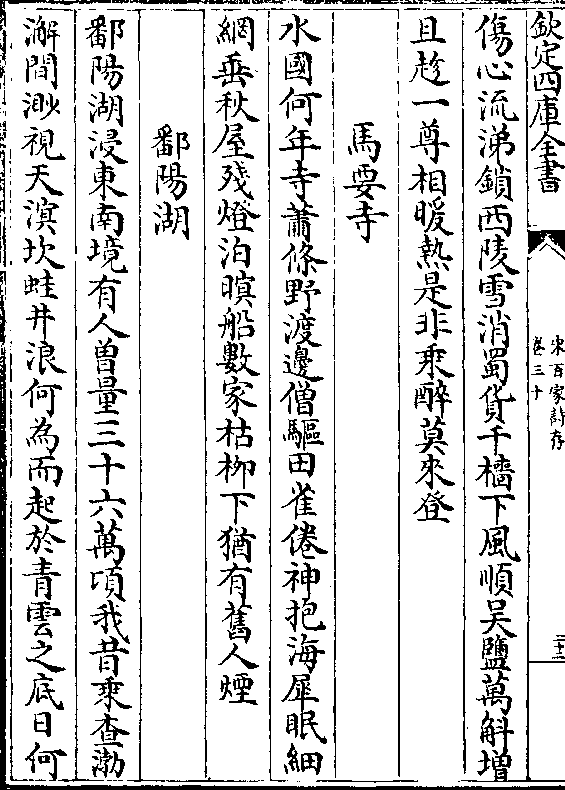 欽定四庫全書
宋百家詩存
卷三十
二十二
傷心流涕鎖西陵雪消蜀貨千檣下風順吳鹽萬斛增
且趁一尊相暖熱是非乘醉莫來登
馬要寺
水國何年寺蕭條野渡邊僧驅田雀倦神抱海犀眠細
網垂秋屋殘燈泊暝船數家枯柳下猶有舊人煙
鄱陽湖
鄱陽湖浸東南境有人曽量三十六萬頃我昔乘查渤
澥間渺視天溟坎蛙井浪何為而起於青雲之底日何